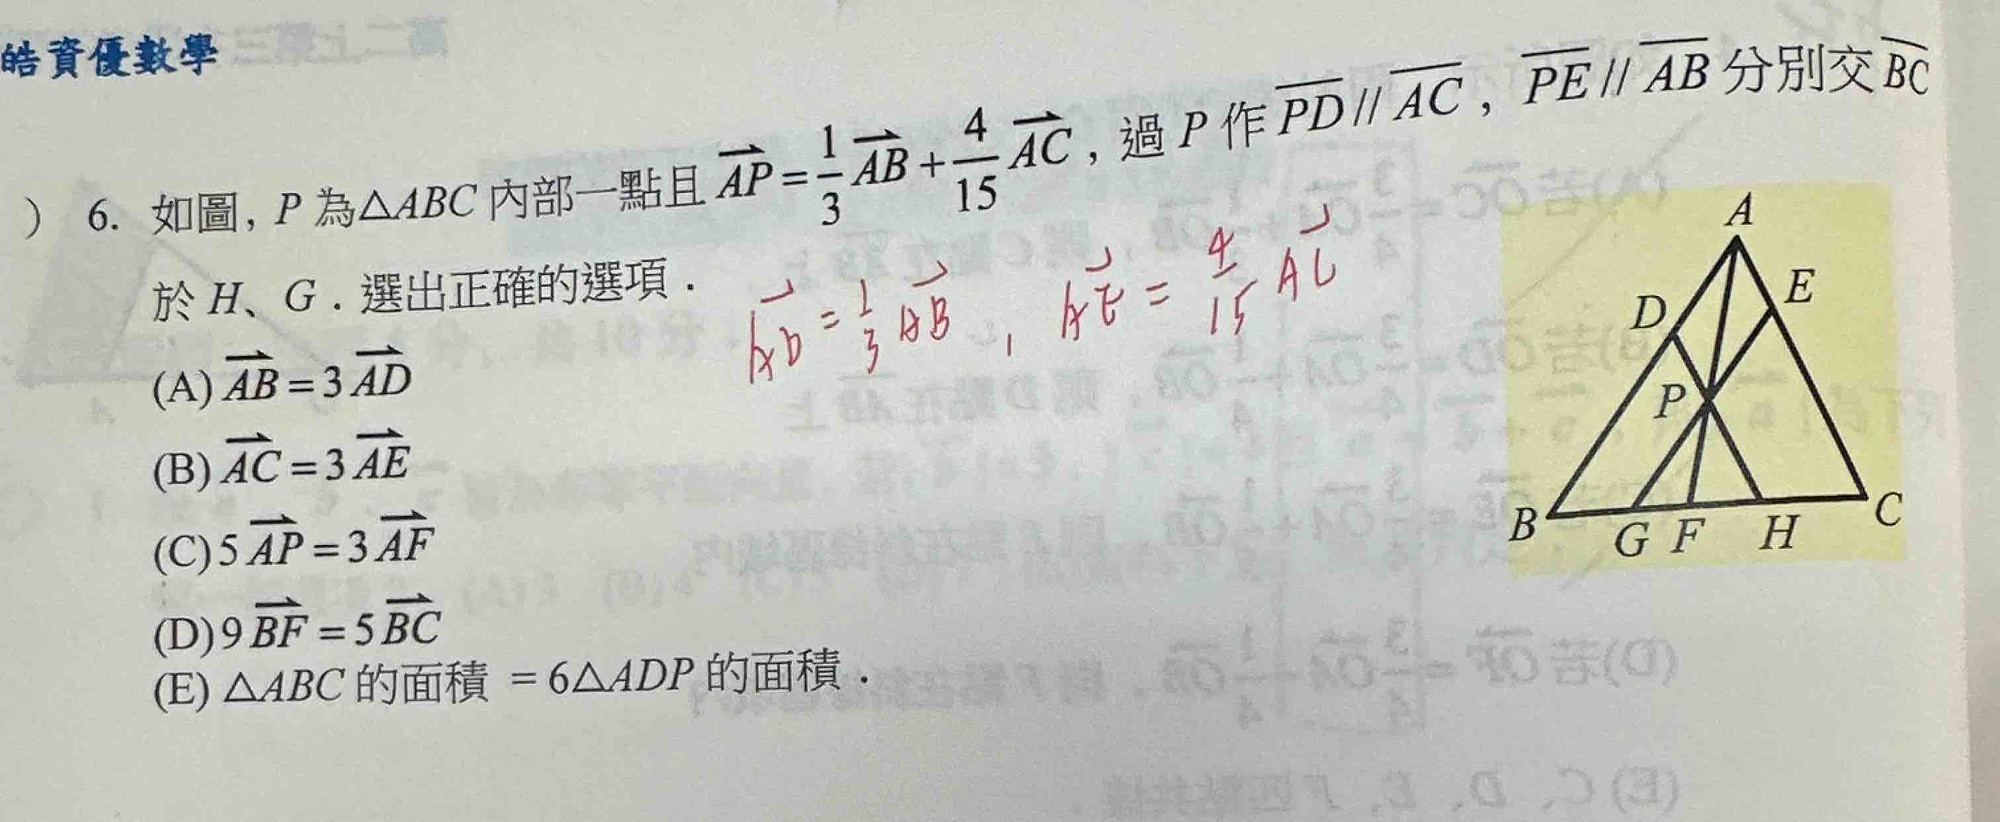 皓資優數學
) 6. 如圖, P 為△ABC 內部一點且 $\overrightarrow{AP}=\frac{1}{3}\overrightarrow{AB}+\frac{4}{15}\overrightarrow{AC}$, 過 P 作 $\overline{PD}//\overline{AC}$, $\overline{PE}//\overline{AB}$ 分別交 $\overline{BC}$
於 H、G. 選出正確的選項.
$\overrightarrow{AD}=\frac{1}{3}\overrightarrow{AB}$, $\overrightarrow{AE}=\frac{4}{15}\overrightarrow{AC}$
(A) $\overrightarrow{AB}=3\overrightarrow{AD}$
(B) $\overrightarrow{AC}=3\overrightarrow{AE}$
(C) $5\overrightarrow{AP}=3\overrightarrow{AF}$
(D) $9\overrightarrow{BF}=5\overrightarrow{BC}$
(E) △ABC 的面積 = 6△ADP 的面積.
A
E
D
P
B
G F H C